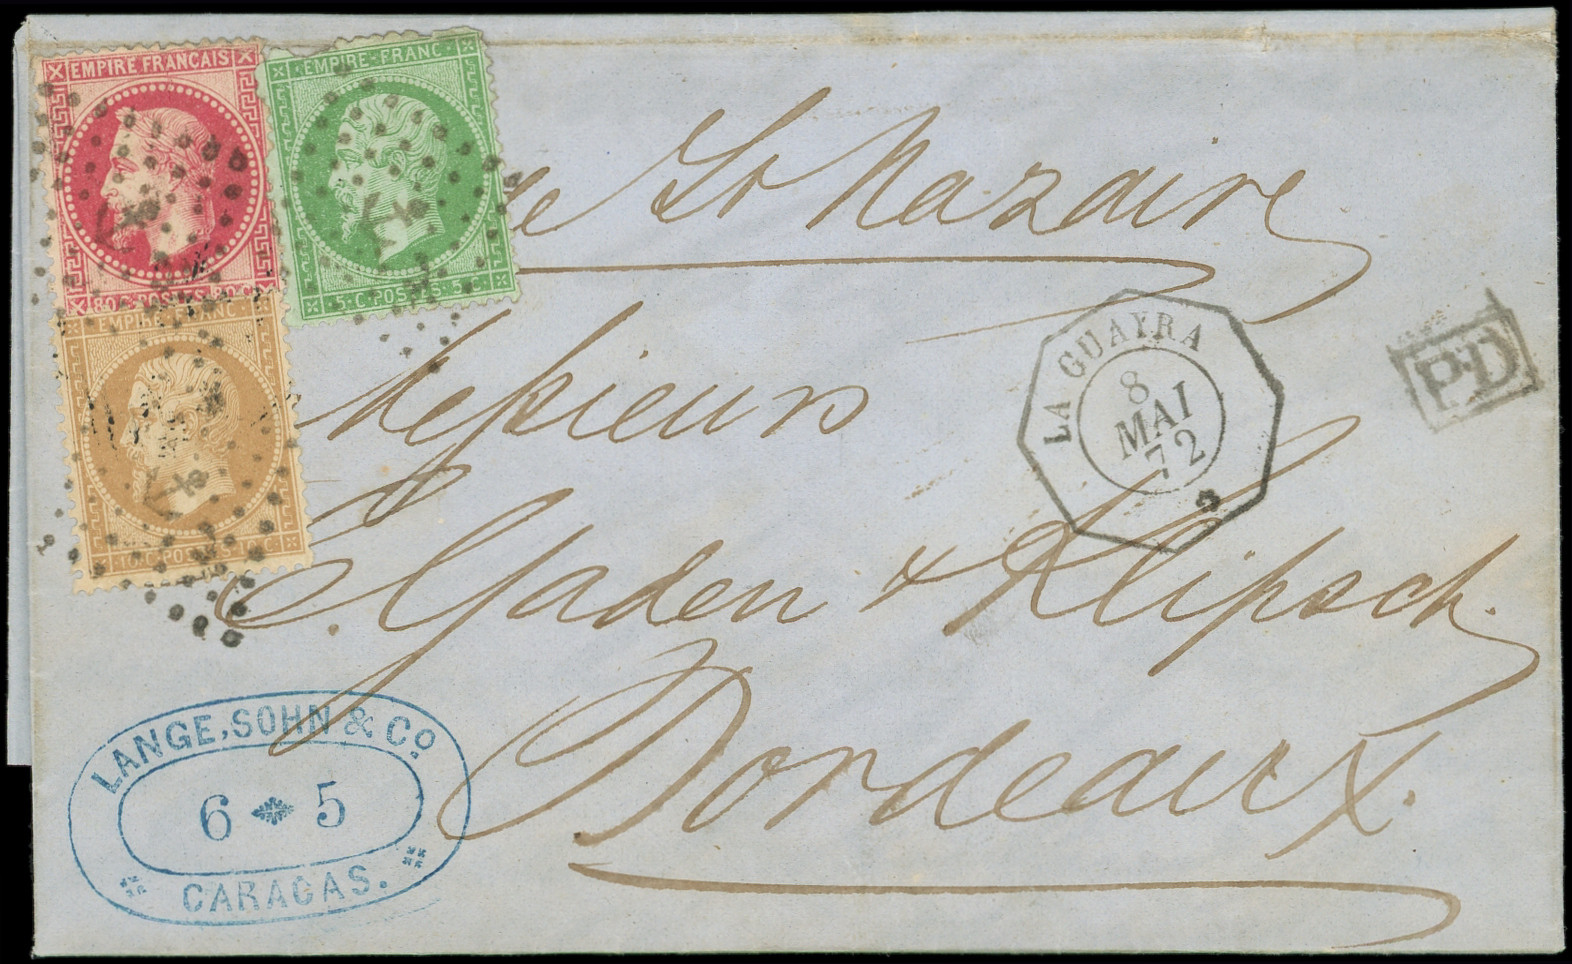 EMPIRE FRANÇAIS
80 C. POSTES 80 C.
EMPIRE · FRANC ·
5 · C · POSTES · 5 · C ·
EMPIRE · FRANC ·
10 · C · POSTES · 10 · C
de St Nazaire
Messieurs
Gaden & Klipsch.
Bordeaux.
LA GUAYRA
8
MAI
72
P.D
LANGE, SOHN & Co
6 5
CARACAS.